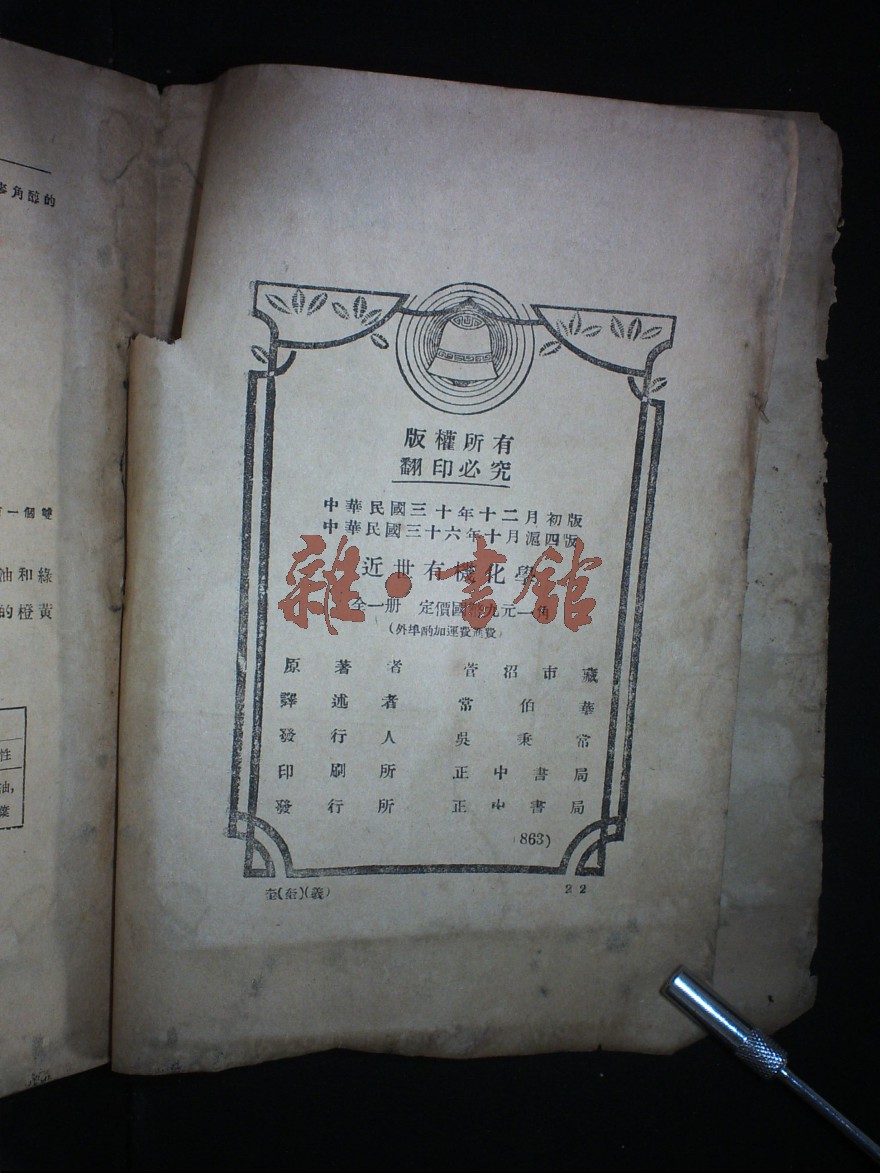 角醇的
一個雙
油和綠
的橙黃
性
油,
葉
版權所有
翻印必究
中華民國三十年十二月初版
中華民國三十六年十月滬四版
近世有機化學
全一册 定價國幣九元一角
(外埠酌加運費滙費)
原著者 菅沼市藏
譯述者 常伯華
發行人 吳秉常
印刷所 正中書局
發行所 正中書局
(863)
22
雜·書館